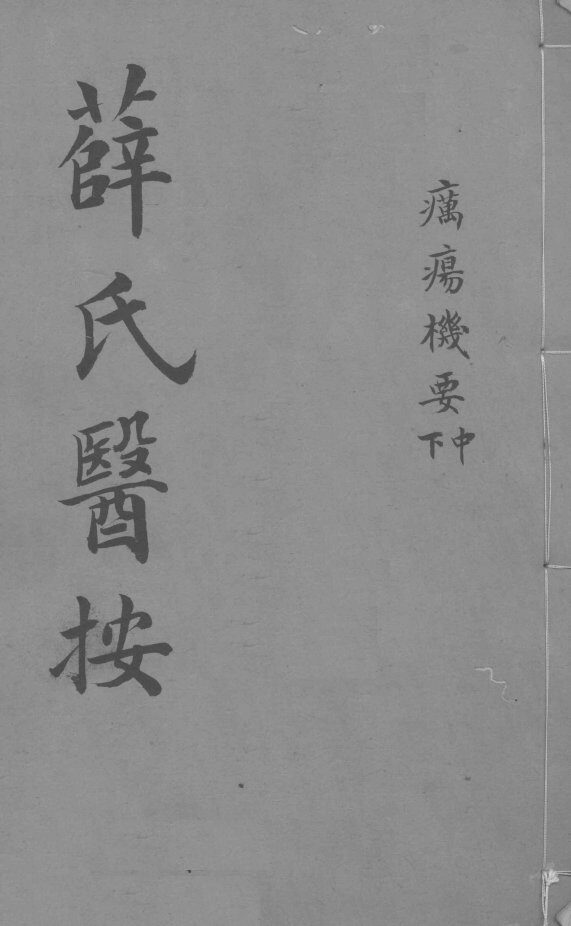 癘瘍機要中下
薛氏醫按